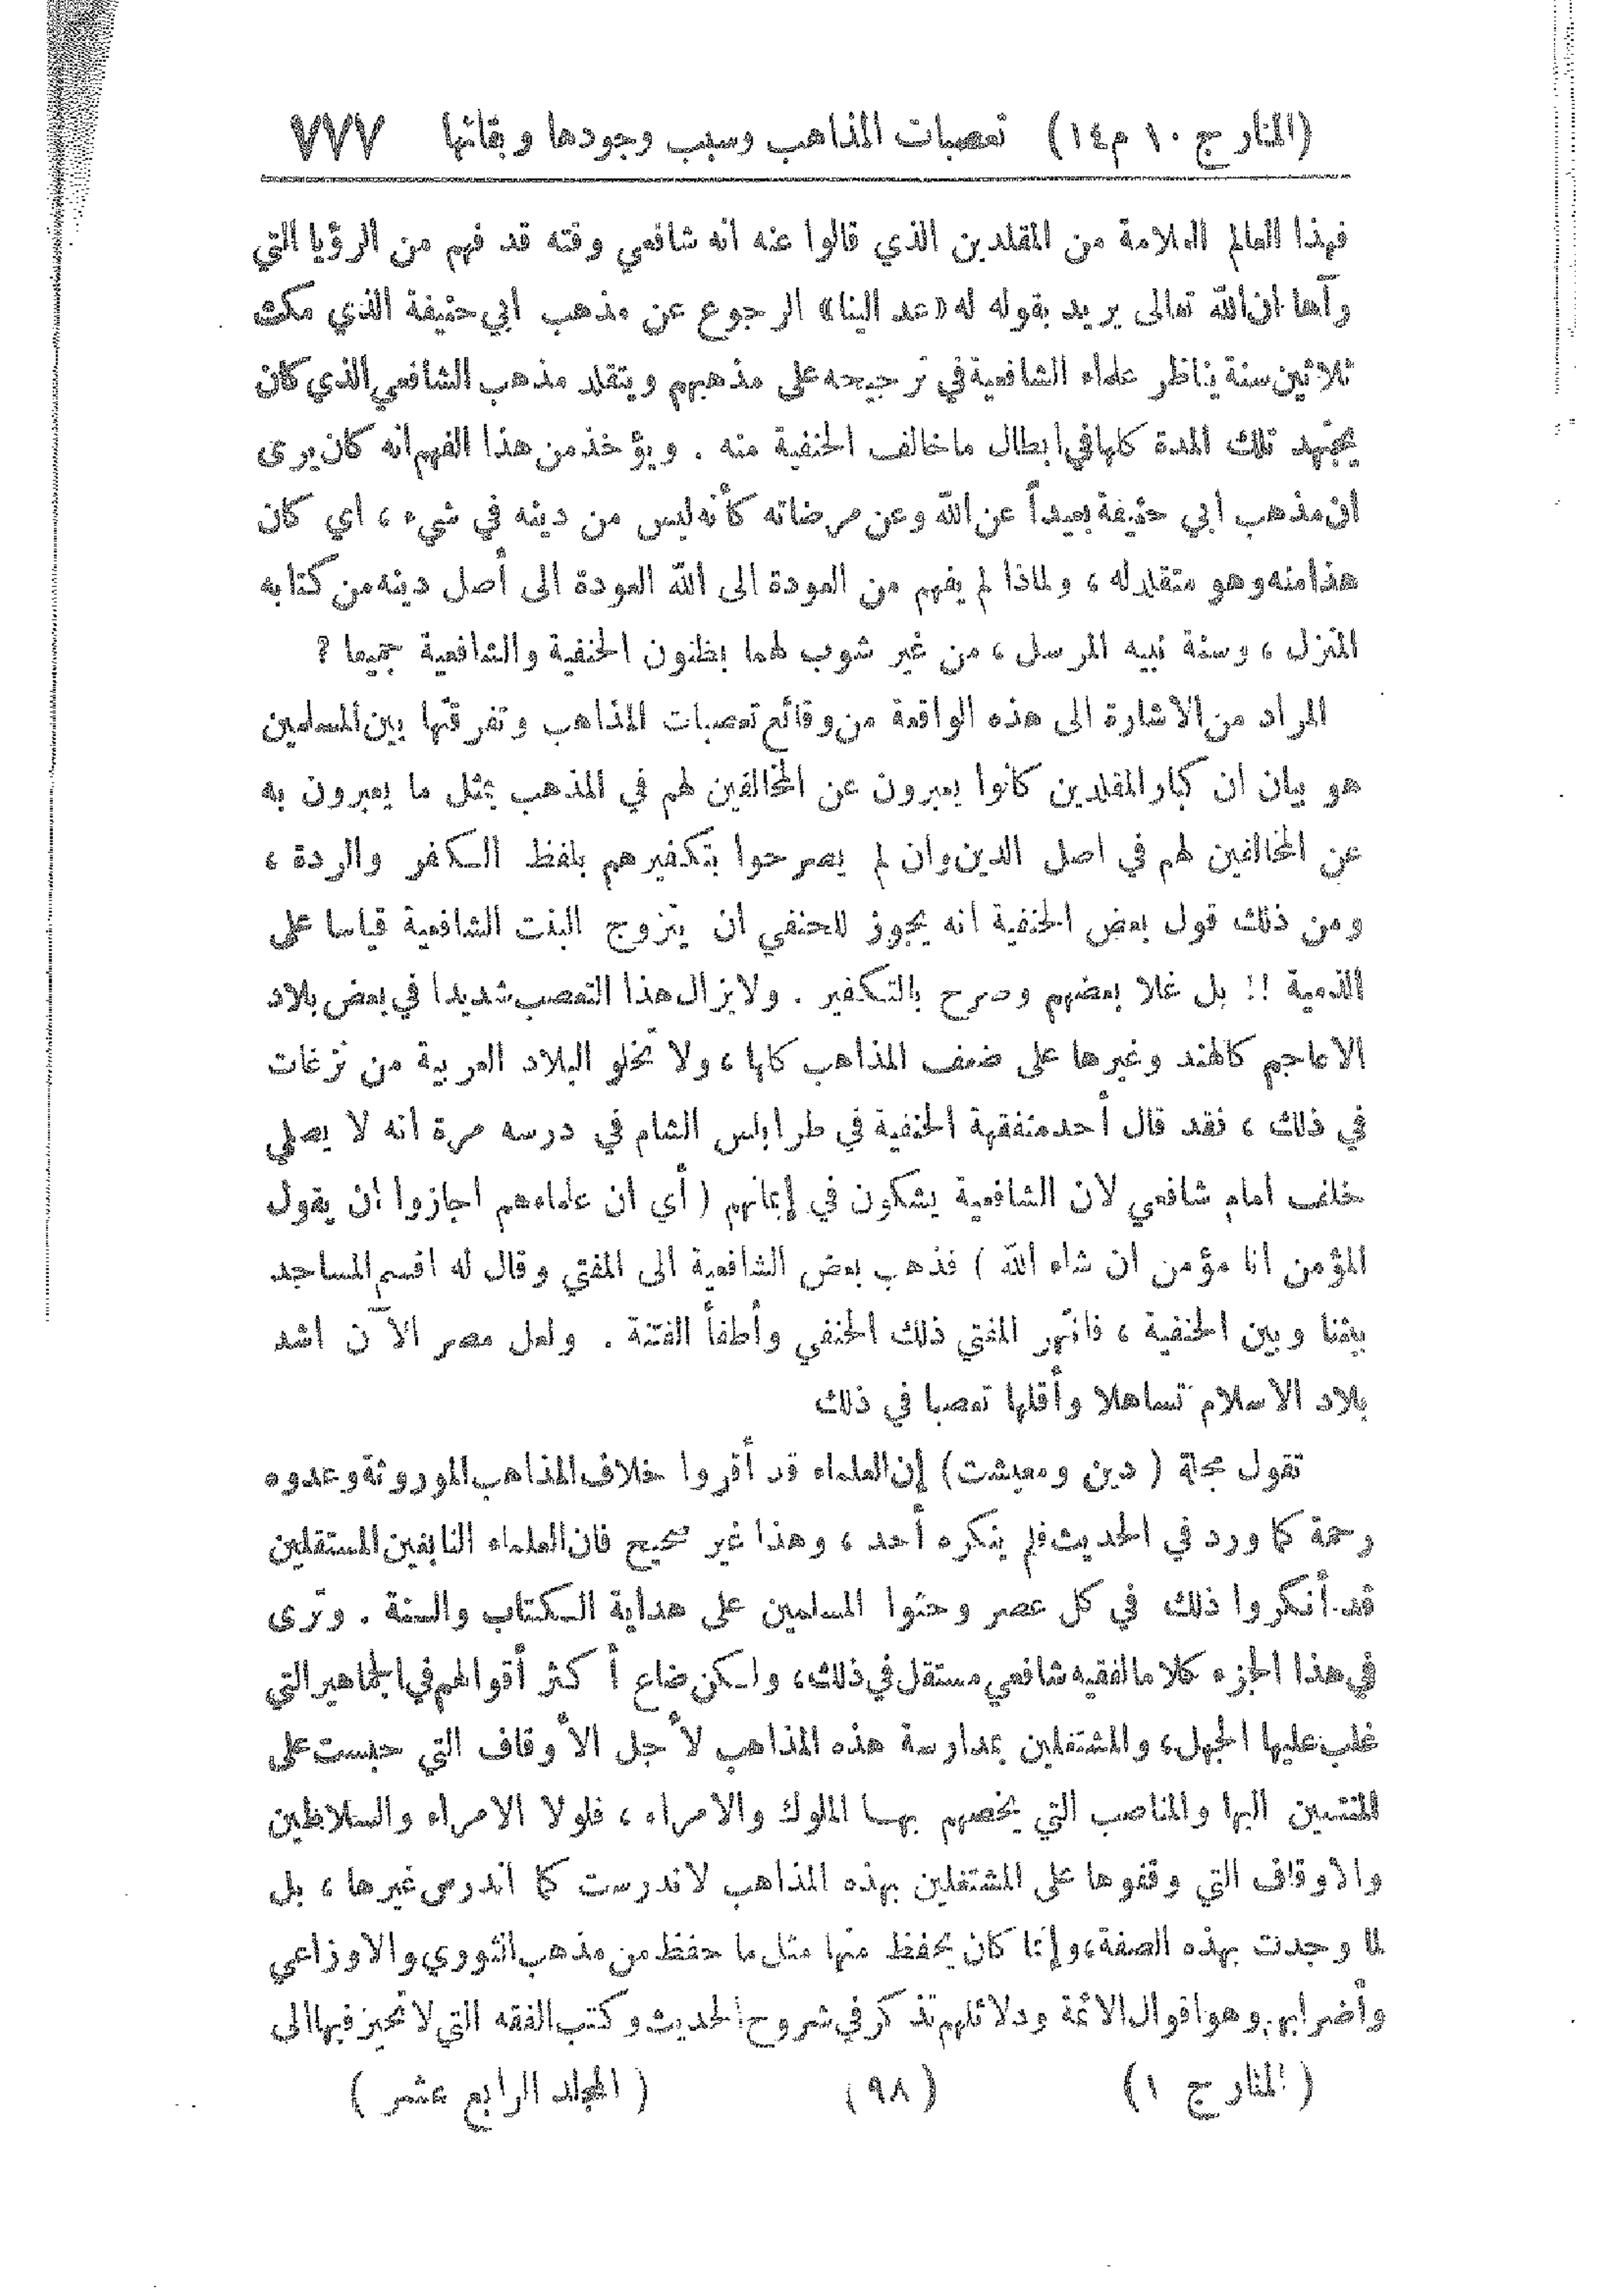 (المنار ج ١٠ م ١٤) تعصبات المذاهب وسبب وجودها وبقائها ٧٧٧
فهذا العالم العلامة من المقلدين الذي قالوا عنه انه شافعي وقته قد فهم من الرؤيا التي
رآها ان الله تعالى يريد بقوله له «عد الينا» الرجوع عن مذهب ابي حنيفة الذي مكث
ثلاثين سنة يناظر علماء الشافعية في ترجيحه على مذهبهم ويتقلد مذهب الشافعي الذي كان
يجتهد تلك المدة كلها في ابطال ما خالف الحنفية منه . ويؤخذ من هذا الفهم انه كان يرى
ان مذهب ابي حنيفة بعيداً عن الله وعن مرضاته كأنه ليس من دينه في شيء ، اي كان
هذا منه وهو متقلد له ، ولماذا لم يفهم من العودة الى الله العودة الى أصل دينه من كتابه
المنزل ، وسنة نبيه المرسل ، من غير شوب لهما بظنون الحنفية والشافعية جميعا ؟
المراد من الاشارة الى هذه الواقعة من وقائع تعصبات المذاهب وتفرقتها بين المسلمين
هو بيان ان كبار المقلدين كانوا يعبرون عن المخالفين لهم في المذهب بمثل ما يعبرون به
عن المخالفين لهم في اصل الدين وان لم يصرحوا بتكفيرهم بلفظ الكفر والردة ،
ومن ذلك قول بعض الحنفية انه يجوز للحنفي ان يتزوج البنت الشافعية قياسا على
الذمية !! بل غلا بعضهم وصرح بالتكفير . ولا يزال هذا التعصب شديدا في بعض بلاد
الاعاجم كالهند وغيرها على ضعف المذاهب كلها ، ولا تخلو البلاد العربية من نزغات
في ذلك ، فقد قال أحد متفقهة الحنفية في طرابلس الشام في درسه مرة انه لا يصلي
خلف امام شافعي لان الشافعية يشكون في إيمانهم ( أي ان علماءهم اجازوا ان يقول
المؤمن انا مؤمن ان شاء الله ) فذهب بعض الشافعية الى المفتي وقال له اقسم المساجد
بيننا وبين الحنفية ، فانتهر المفتي ذلك الحنفي وأطفأ الفتنة . ولعل مصر الآن اشد
بلاد الاسلام تساهلا وأقلها تعصبا في ذلك
تقول مجلة ( دين ومعيشت ) إن العلماء قد أقروا خلاف المذاهب الموروثة وعدوه
رحمة كما ورد في الحديث فلم ينكره أحد ، وهذا غير صحيح فان العلماء النابغين المستقلين
قد أنكروا ذلك في كل عصر وحثوا المسلمين على هداية الكتاب والسنة . وترى
في هذا الجزء كلاما لفقيه شافعي مستقل في ذلك ، ولكن ضاع أكثر أقوالهم في الجماهير التي
غلب عليها الجهل ، والمشتغلين بمدارسة هذه المذاهب لأجل الأوقاف التي حبست على
المنتمين اليها والمناصب التي يخصهم بها الملوك والامراء ، فلولا الامراء والسلاطين
والاوقاف التي وقفوها على المشتغلين بهذه المذاهب لاندرست كما اندرس غيرها ، بل
لما وجدت بهذه الصفة ، وإنما كان يحفظ منها مثل ما حفظ من مذهب الثوري والاوزاعي
وأضرابهم وهو اقوال الائمة ودلائلهم تذكر في شروح الحديث وكتب الفقه التي لا تحيز فيها الى
( المنار ج ١ ) ( ٩٨ ) ( المجلد الرابع عشر )